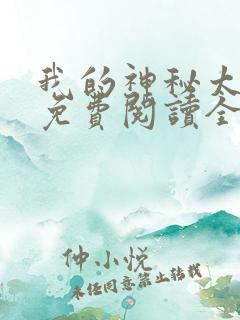 我的神秘大
免費閱讀全
仲小悦
未经同意禁止转载